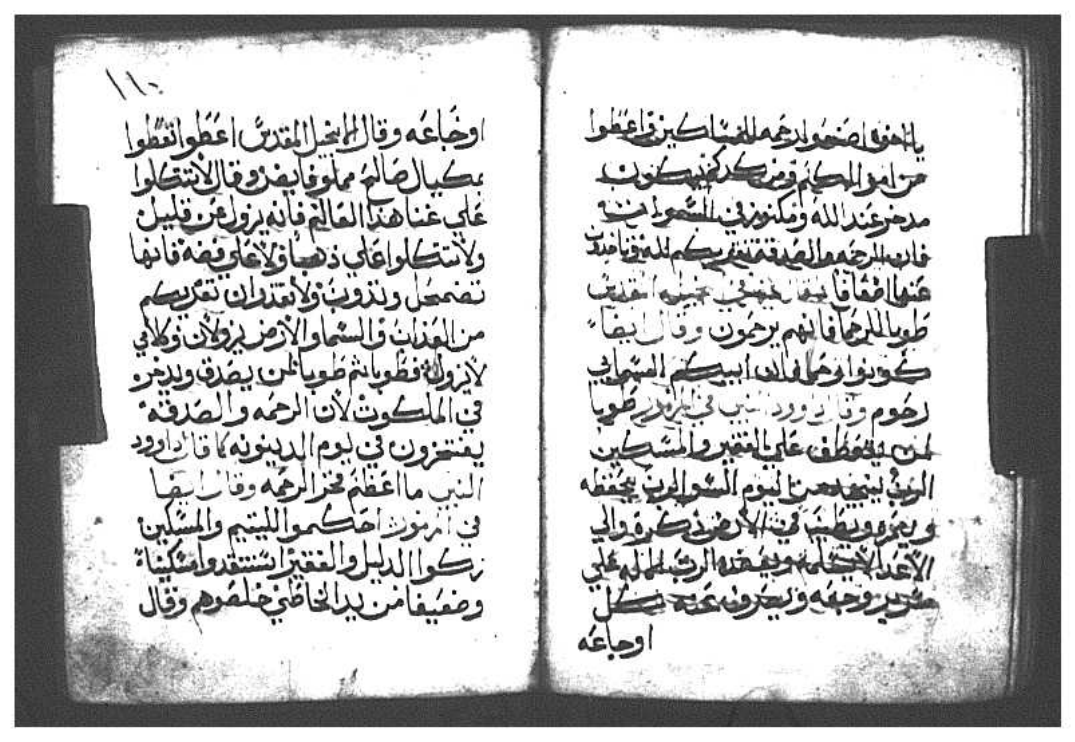 يا اخوه اصنعوا الرحمه للمساكين واعطوا
من اموالكم ومن كدكم ليكون
مدخر عند الله ومكنوز في السموات
فان الرحمه والصدقه تقربكم لله وياخذون
عنها اضعافا في الانجيل المقدس
طوبا للرحما فانهم يرحمون وقال ايضا
كونوا رحما فان ابيكم السماني
رحوم وقال داوود النبي في المزمور طوبا
لمن يتعطف علي الفقير والمسكين
الرب ينجيه من اليوم السو الرب يحفظه
ويعزه ويطيب في الارض ذكره والي
الاعدا لا يسلمه ويعضده الرب الاله علي
سرير وجعه ويحرونه عنه بكل
اوجاعه
١١٠
اوجاعه وقال الانجيل المقدس اعطوا تعطوا
بمكيال صالح مملو فايض وقال لا تتكلوا
علي غنا هذا العالم فانه يزول عن قليل
ولا تتكلوا علي ذهبا ولا علي فضه فانها
تضمحل وتذوب ولا تقدر ان تغزيكم
من العذاب والسما والارض يزولان وكلامي
لا يزول فطوبا ثم طوبا لمن يصدق ويدخل
في الملكوت لان الرحمه والصدقه
يفتخرون في يوم الدينونه كما قال داوود
النبي ما اعظم فخر الرحمه وقال ايضا
في المزمور احكموا لليتيم والمسكين
زكوا الدليل والفقير استنقدوا مسكينا
وضعيفا من يد الخاطي خلصوهم وقال